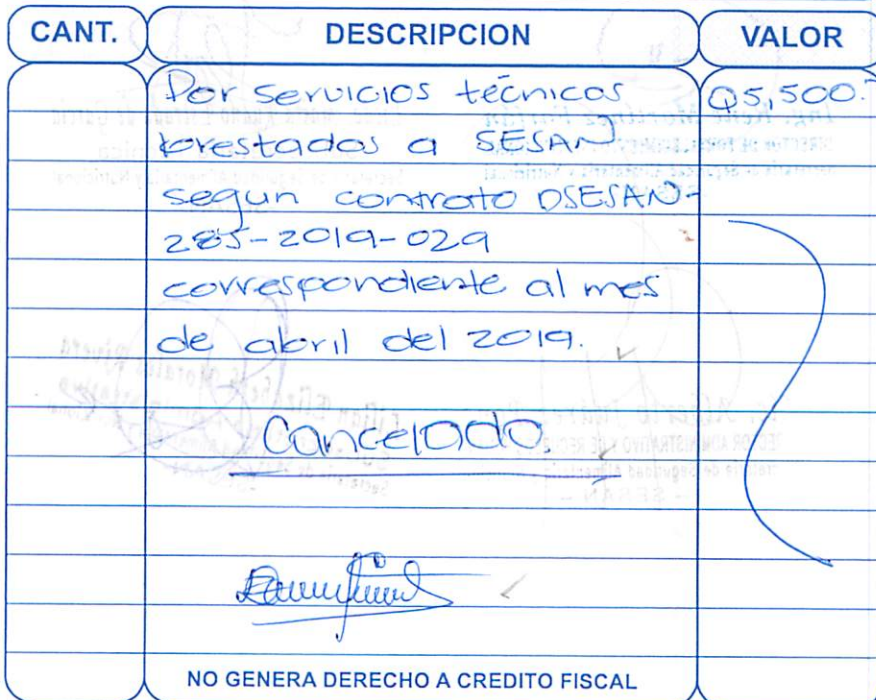 CANT. DESCRIPCION VALOR
Por servicios técnicos Q5,500.
prestados a SESAN
segun contrato DSESAN-
285-2019-029
correspondiente al mes
de abril del 2019.
Cancelado.
NO GENERA DERECHO A CREDITO FISCAL